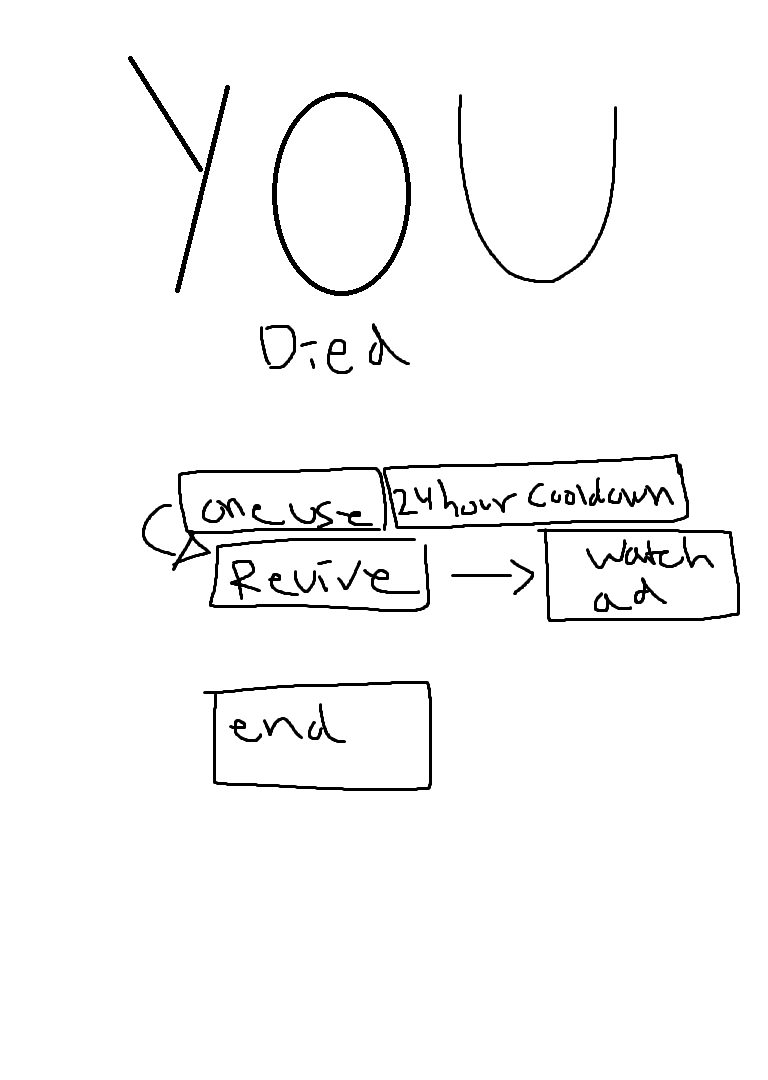 YOU
Died
one use
24 hour cooldown
Revive
watch
ad
end